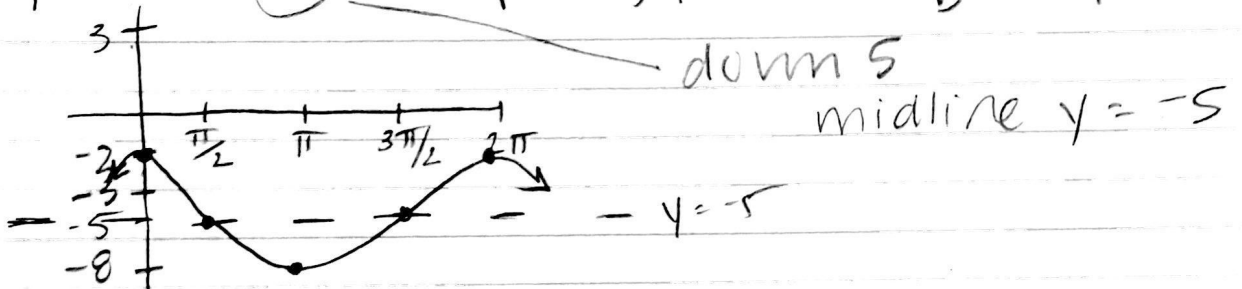 3
down 5
midline y = -5
π/2 π 3π/2 2π
-2
-3
-5
y = -5
-8